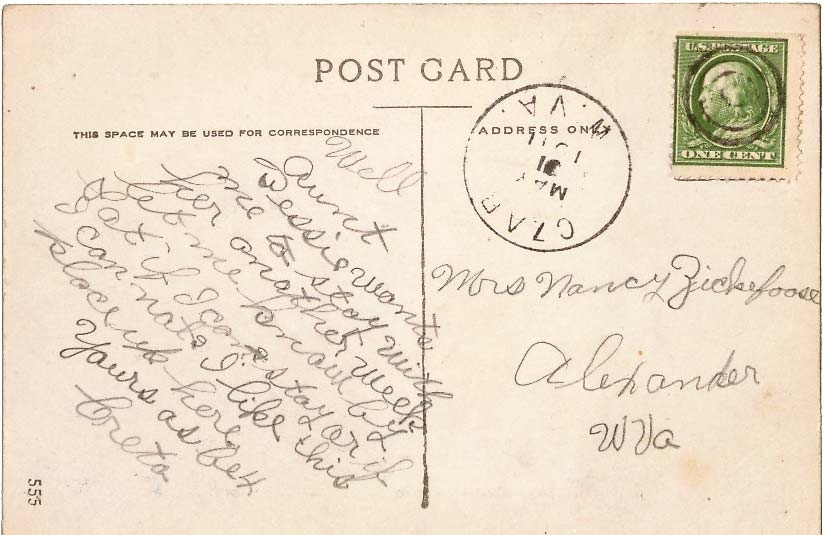 POST CARD
THIS SPACE MAY BE USED FOR CORRESPONDENCE
ADDRESS ONLY
U.S. POSTAGE
ONE CENT
CZAR
MAY
31
W. VA.
Well
Aunt
Bessie wants
me to stay with
her another week
let me know by
Sat if I can stay or if
I can not. I like this
place up here
Yours as
Creta
Mrs Nancy Zickefoose
Alexander
W Va
555